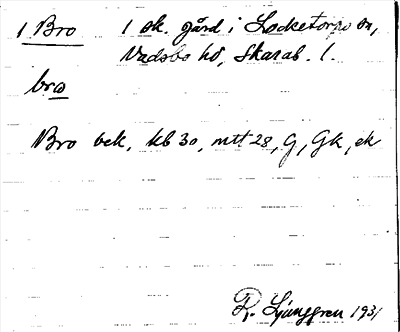 1 Bro 1 sk. gård i Locketorps sn,
Vadsbo hd, Skarab. l.
bro
Bro bek, kb 30, mtt 28, G, GK, ek
R. Ljunggren 1931